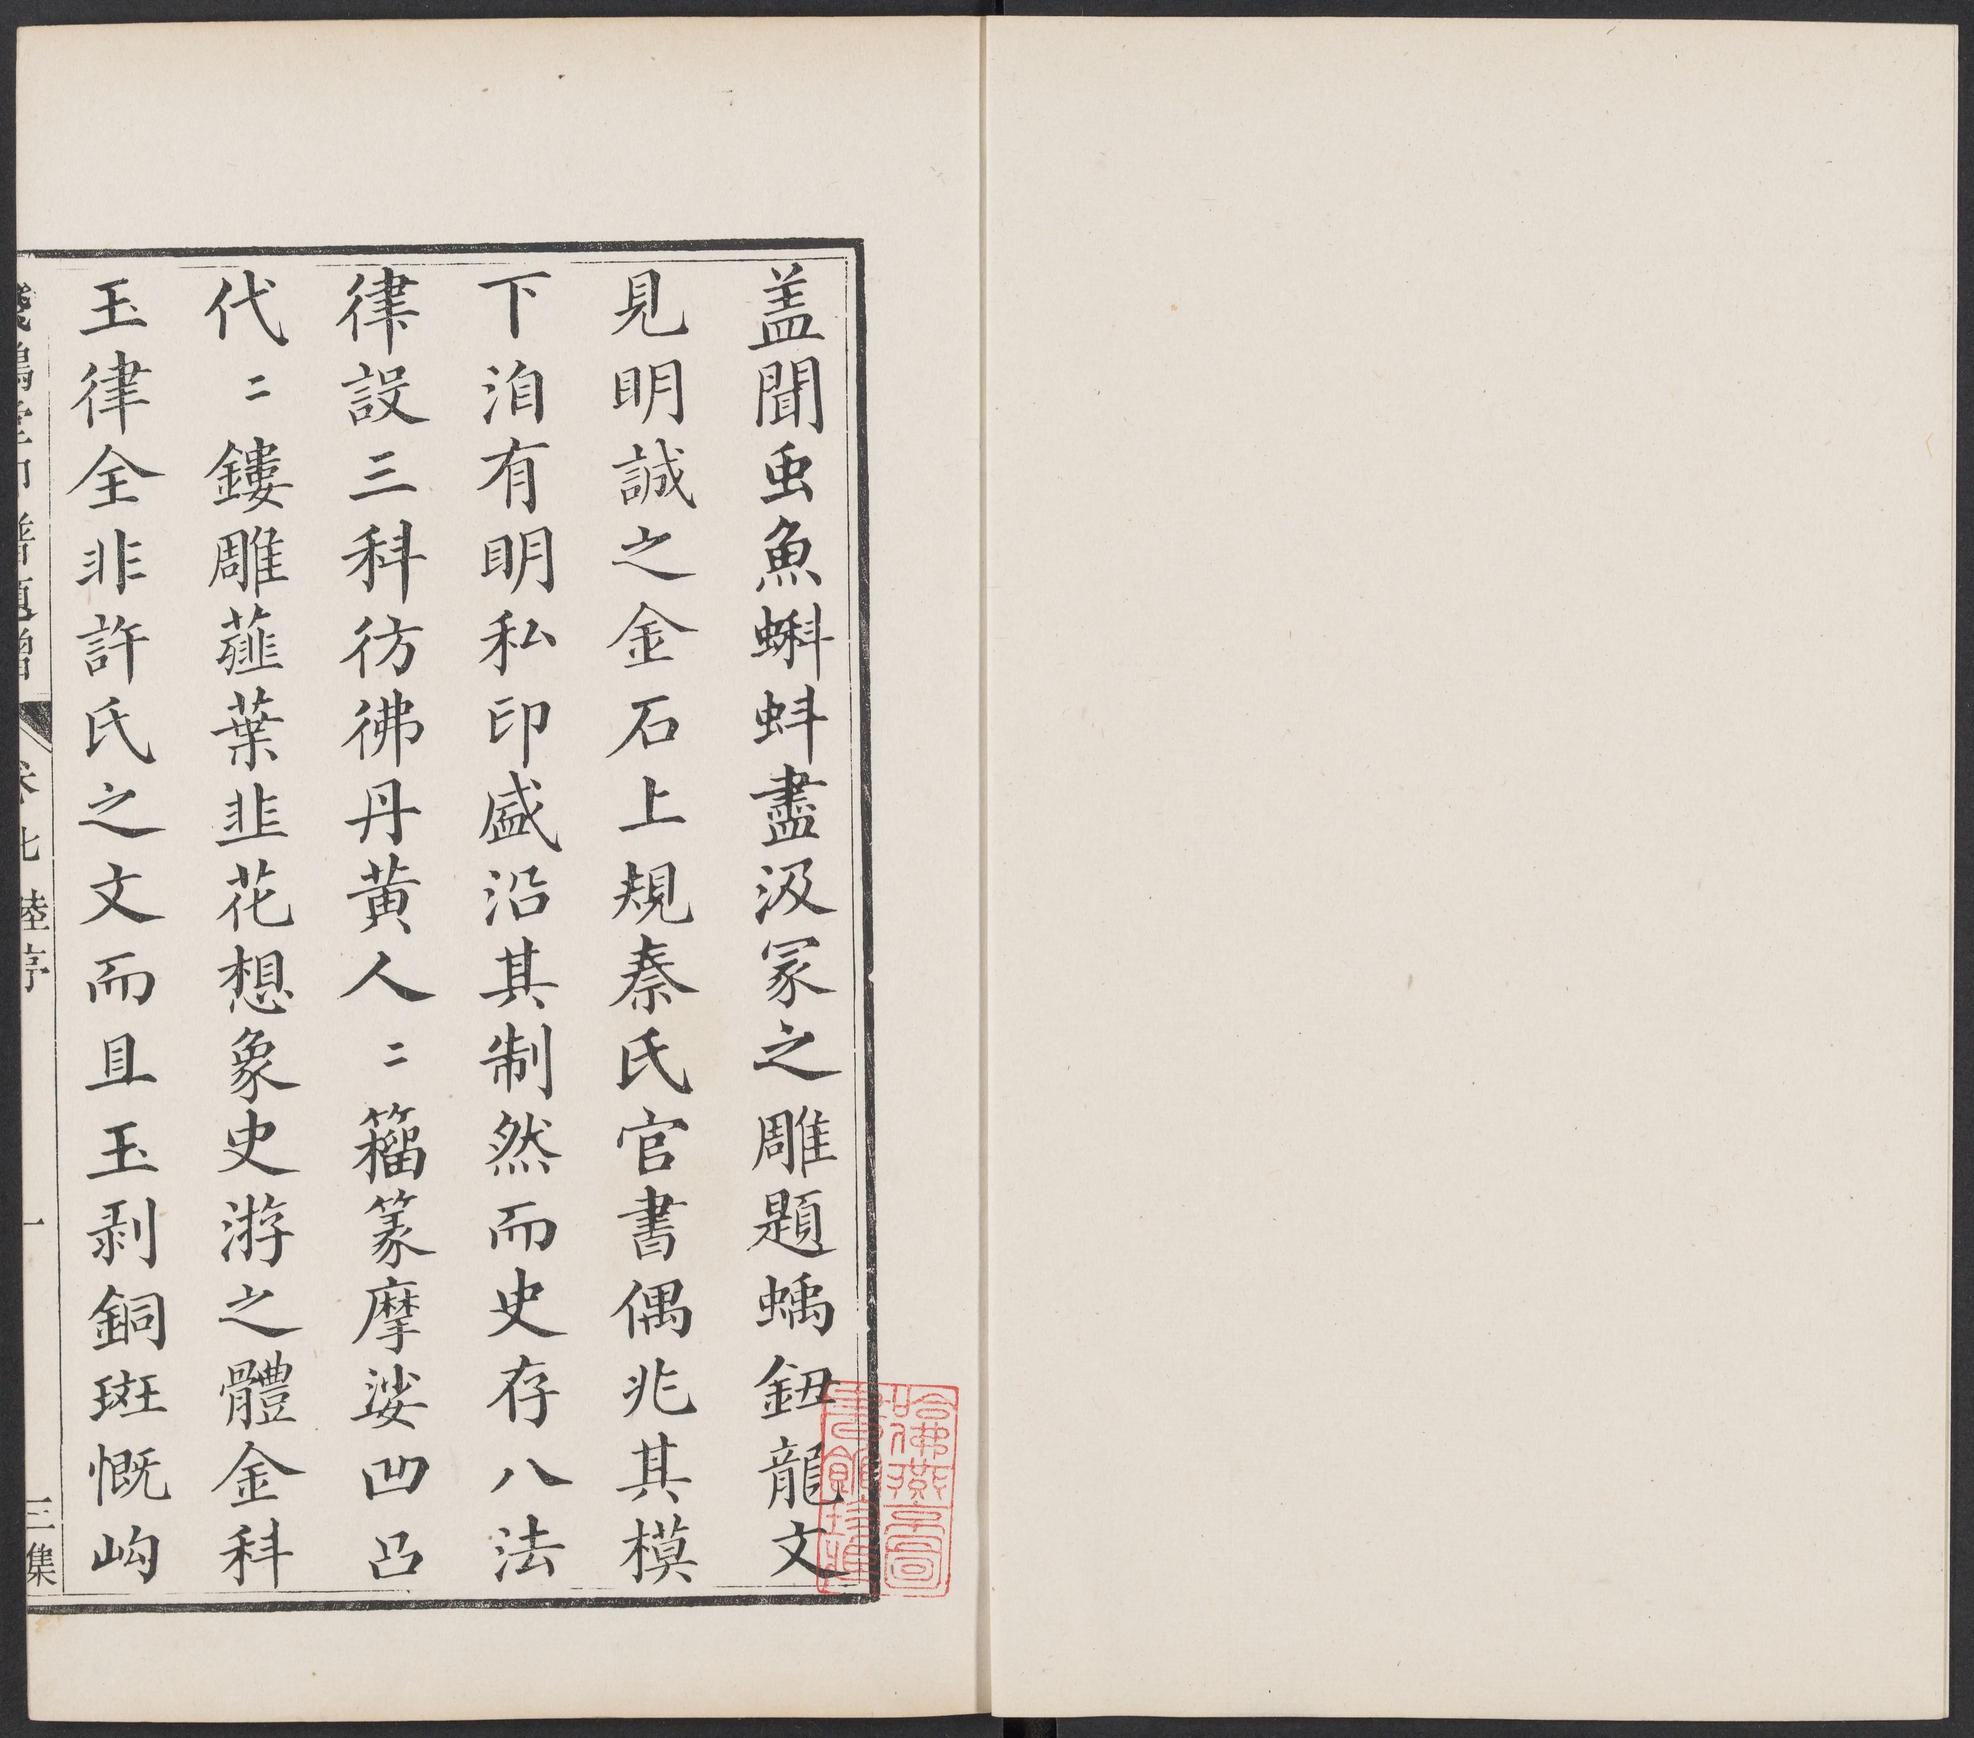 盖聞虫魚蝌蚪盡汲冢之雕題螭鈕龍文
見明誠之金石上規秦氏官書偶兆其模
下洎有明私印盛沿其制然而史存八法
律設三科彷彿丹黄人〻籀篆摩挲凹凸
代〻鏤雕薤葉韭花想象史游之體金科
玉律全非許氏之文而且玉剥銅斑慨岣
卷七 陸序 一 三集
哈佛燕京圖書館珍藏